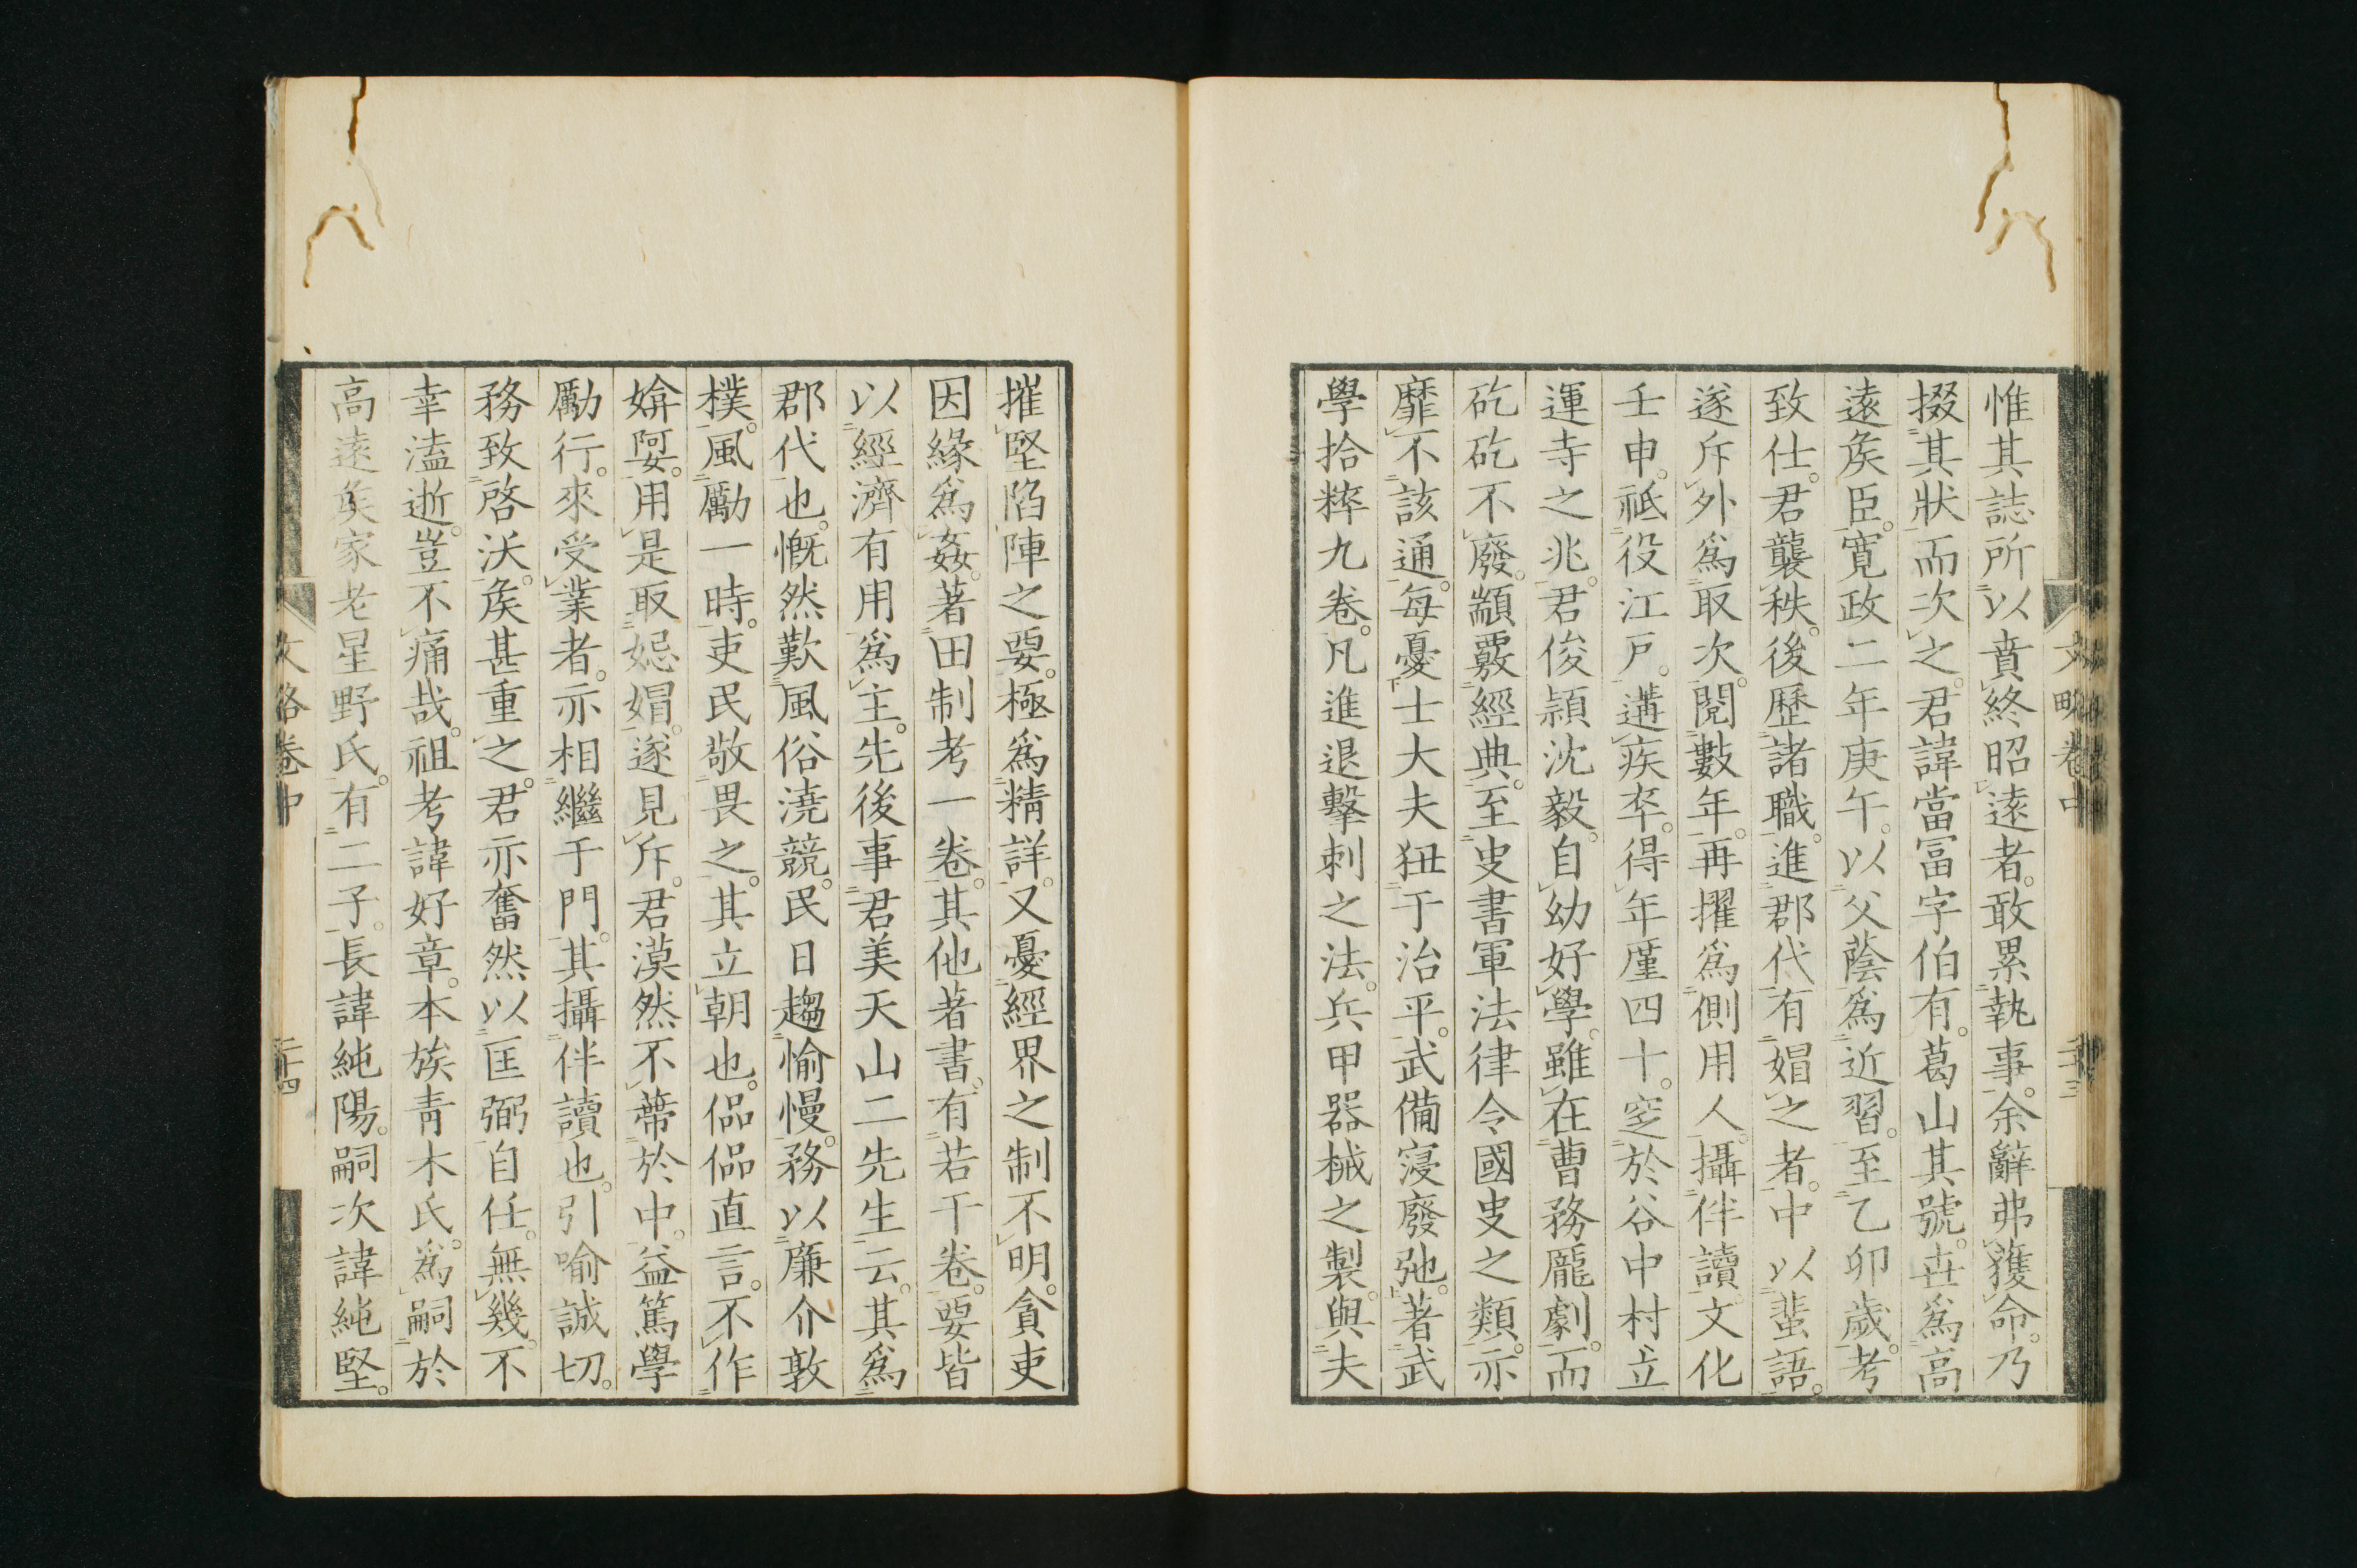 惟其誌所以賁終昭遠者。敢累執事。余辭弗獲命。乃
掇其狀而次之。君諱當冨字伯有。葛山其號。丗爲高
遠矦臣。寛政二年庚午。以父蔭爲近習。至乙卯歲。考
致仕。君襲秩。後歷諸職。進郡代。有娼之者。中以蜚語。
遂斥外爲取次。閱數年。再擢爲側用人。攝伴讀文化
壬申。祗役江戶。遘疾卒。得年厪四十。窆於谷中村立
運寺之兆。君俊頴沈毅。自幼好學。雖在曹務龐劇。而
矻矻不廢。顓覈經典。至史書軍法律令國史之類。亦
靡不該通。每憂士大夫狃于治平。武備寖廢弛。著武
學拾粹九卷。凡進退擊刺之法。兵甲器械之製。與夫
摧堅陷陣之要。極爲精詳。又憂經界之制不明。貪吏
因緣爲姦。著田制考一卷。其他著書。有若干卷。要皆
以經濟有用爲主。先後事君美天山二先生云。其爲
郡代也。慨然歎風俗澆競。民日趨愉慢。務以廉介敦
樸。風勵一時。吏民敬畏之。其立朝也。偘偘直言。不作
媕婀。用是取忌媢。遂見斥。君漠然不蔕於中。益篤學
勵行。來受業者。亦相繼于門。其攝伴讀也。引喻誠切。
務致啓沃。矦甚重之。君亦奮然以匡弼自任。無幾。不
幸溘逝。豈不痛哉。祖考諱好章。本族靑木氏。爲嗣於
高遠矦家老星野氏。有二子。長諱純陽。嗣次諱純堅。
文略卷中
二十三
文略卷中
二十四